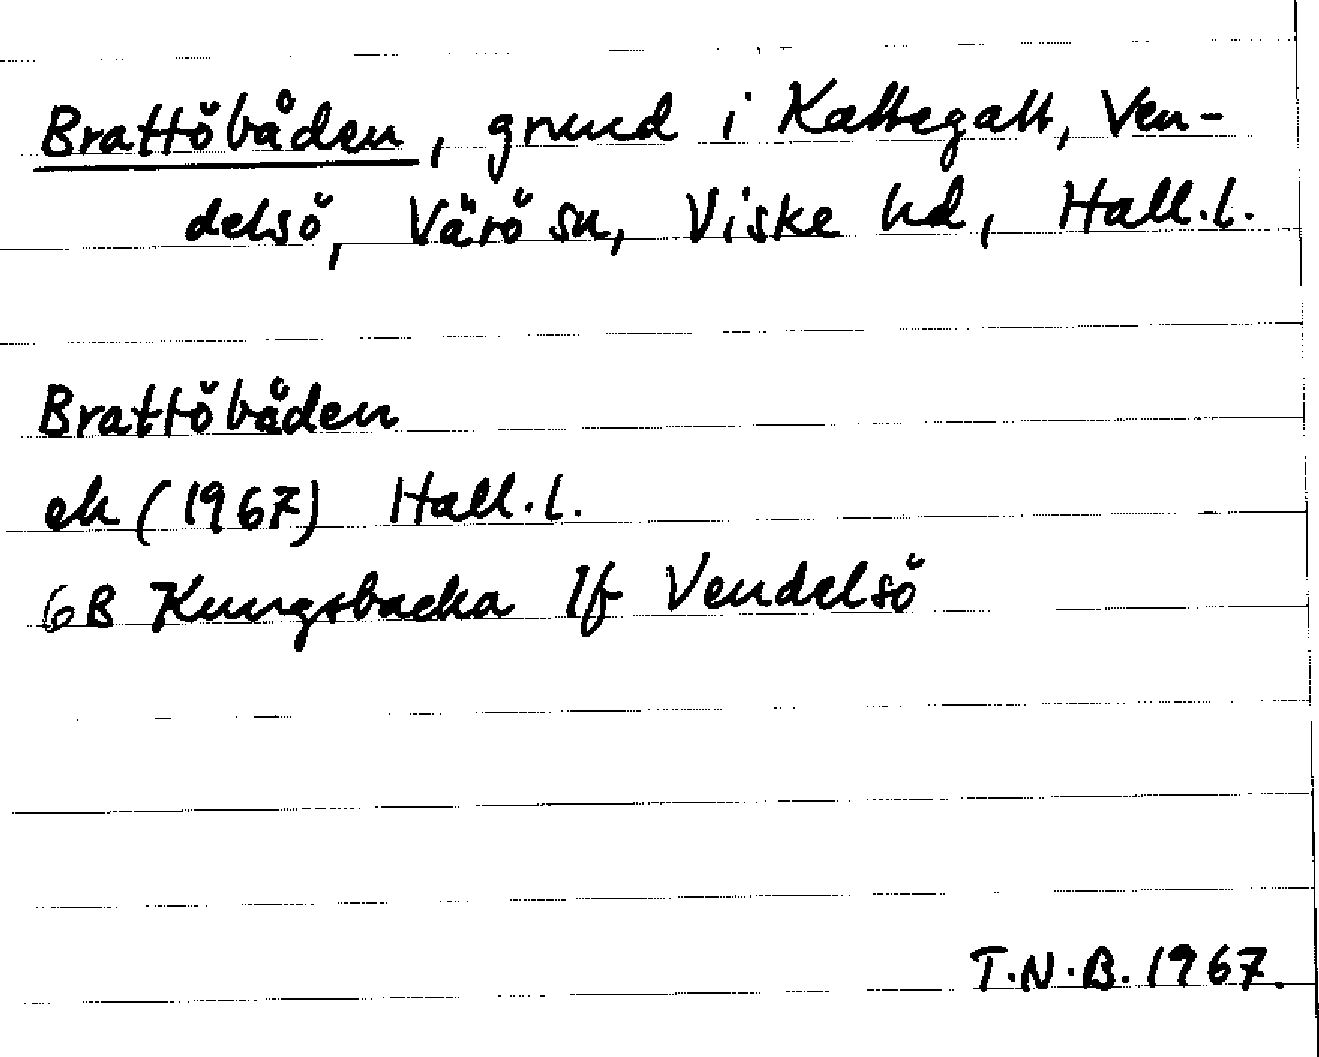 Brattöbåden, grund i Kattegatt, Ven-
delsö, Värö sn, Viske hd, Hall.l.
Brattöbåden
ek (1967) Hall.l.
6B Kungsbacka 1f Vendelsö
T.N.B. 1967.